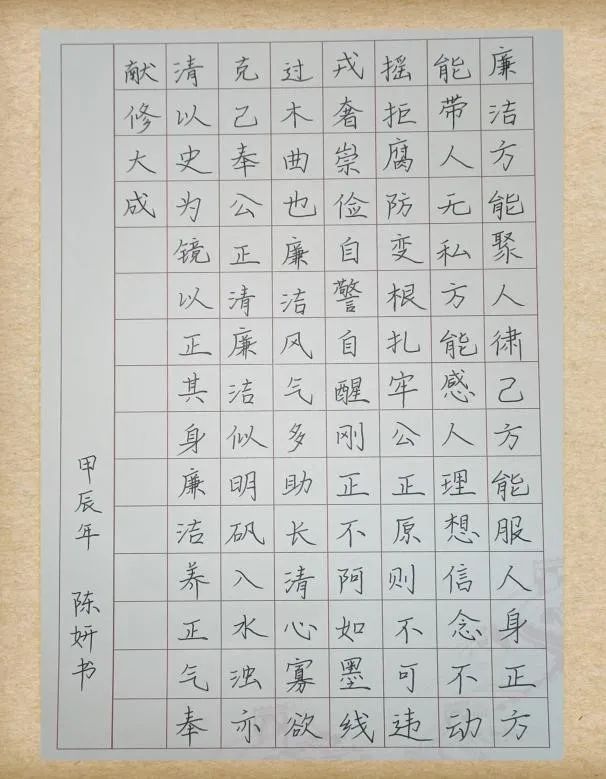 廉洁方能聚人律己方能服人身正方
能带人无私方能感人理想信念不动
摇拒腐防变根扎牢公正原则不可违
戒奢崇俭自警自醒刚正不阿如墨线
过木曲也廉洁风气多助长清心寡欲
克己奉公正清廉洁似明矾入水浊亦
清以史为镜以正其身廉洁养正气奉
献修大成
甲辰年 陈妍书